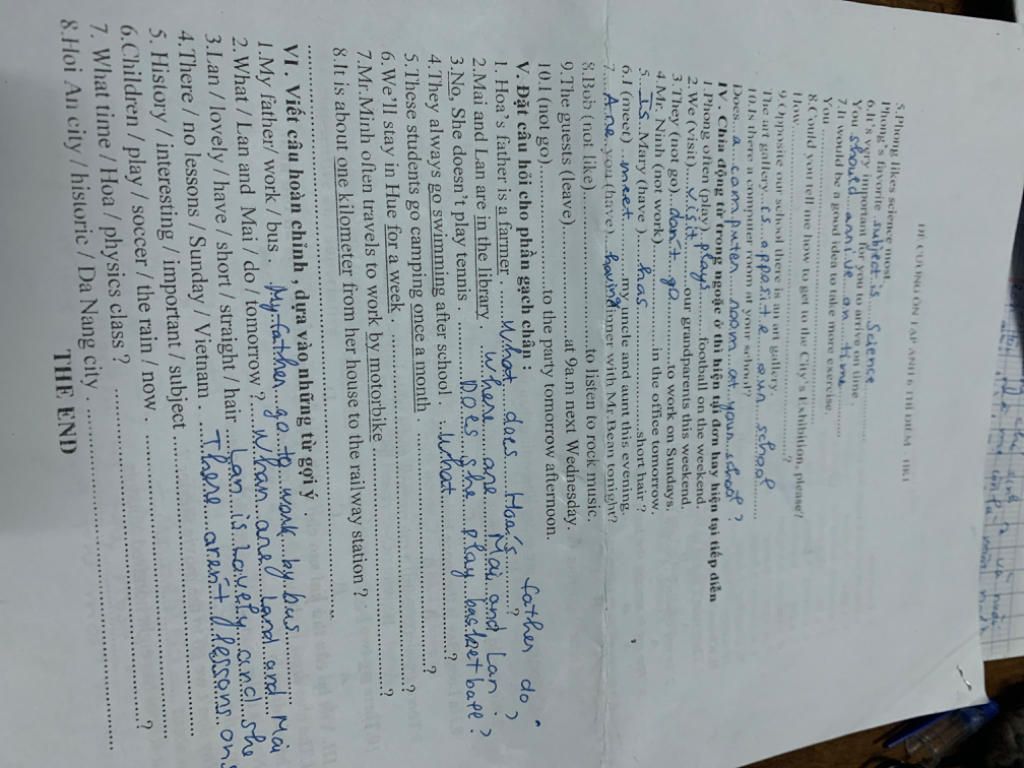 ĐỀ CƯƠNG ÔN TẬP ANH 6 THÍ ĐIỂM - HK1
5.Phong likes science most.
Phong's favorite subject is Science
6.It's very important for you to arrive on time .
You should arrive on time
7.It would be a good idea to take more exercise.
You
8.Could you tell me how to get to the City's Exhibition, please?
How ?
9.Opposite our school there is an art gallery.
The art gallery is opposite our school
10.Is there a computer room at your school?
Does a computer room at your school ?
IV. Chia động từ trong ngoặc ở thì hiện tại đơn hay hiện tại tiếp diễn
1.Phong often (play) plays football on the weekend.
2.We (visit) visit our grandparents this weekend.
3.They (not go) don't go to work on Sundays.
4.Mr. Ninh (not work) in the office tomorrow.
5. Is Mary (have ) has short hair ?
6.I (meet) meet my uncle and aunt this evening.
7. Are you (have ) having dinner with Mr Bean tonight?
8.Bob (not like) to listen to rock music.
9.The guests (leave) at 9a.m next Wednesday.
10.I (not go) to the party tomorrow afternoon.
V. Đặt câu hỏi cho phần gạch chân :
1. Hoa's father is a farmer . What does Hoa's father do ?
2.Mai and Lan are in the library . where are Mai and Lan ?
3.No, She doesn't play tennis Does she play basketball ?
4.They always go swimming after school . What ?
5.These students go camping once a month ?
6.We'll stay in Hue for a week . ?
7.Mr.Minh often travels to work by motorbike ?
8.It is about one kilometer from her house to the railway station ?
VI . Viết câu hoàn chỉnh , dựa vào những từ gợi ý .
1.My father/ work / bus . My father go to work by bus
2.What / Lan and Mai / do / tomorrow ? Whan are Land and Mai
3.Lan / lovely / have / short / straight / hair Lan is lovely and she
4.There / no lessons / Sunday / Vietnam . There aren't lessons on
5. History / interesting / important / subject
6.Children / play / soccer / the rain / now .
7. What time / Hoa / physics class ? ?
8.Hoi An city / historic / Da Nang city .
THE END